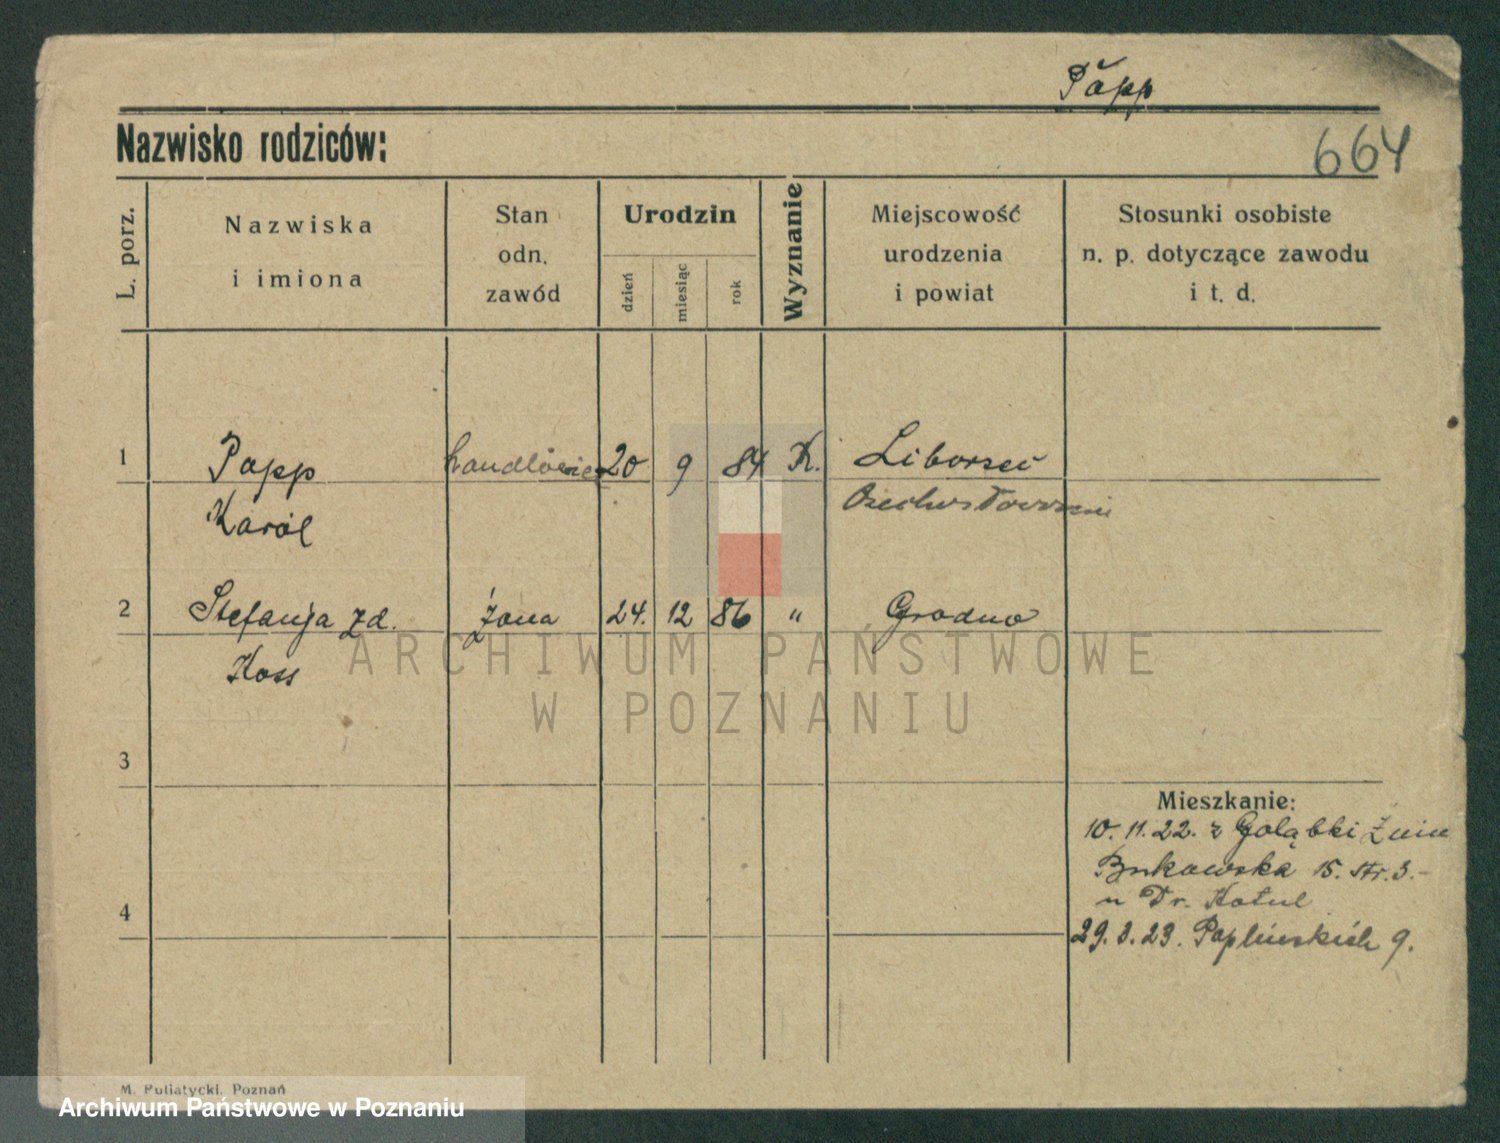 Papp
Nazwisko rodziców:
664
L. porz.
Nazwiska
i imiona
Stan
odn.
zawód
Urodzin
dzień
miesiąc
rok
Wyznanie
Miejscowość
urodzenia
i powiat
Stosunki osobiste
n. p. dotyczące zawodu
i t. d.
1 Papp handlowiec 20 9 84 K.
Karol
2 Stefanja zd. żona 24. 12 86 „ Grodno
Koss
3
Mieszkanie:
10. 11. 22. z Gołąbki Żnin
Bukowska 15. str. 3.-
u Dr.
4
29. 3. 23. 9.
ARCHIWUM PAŃSTWOWE
W POZNANIU
M. Putiatycki, Poznań
Archiwum Państwowe w Poznaniu